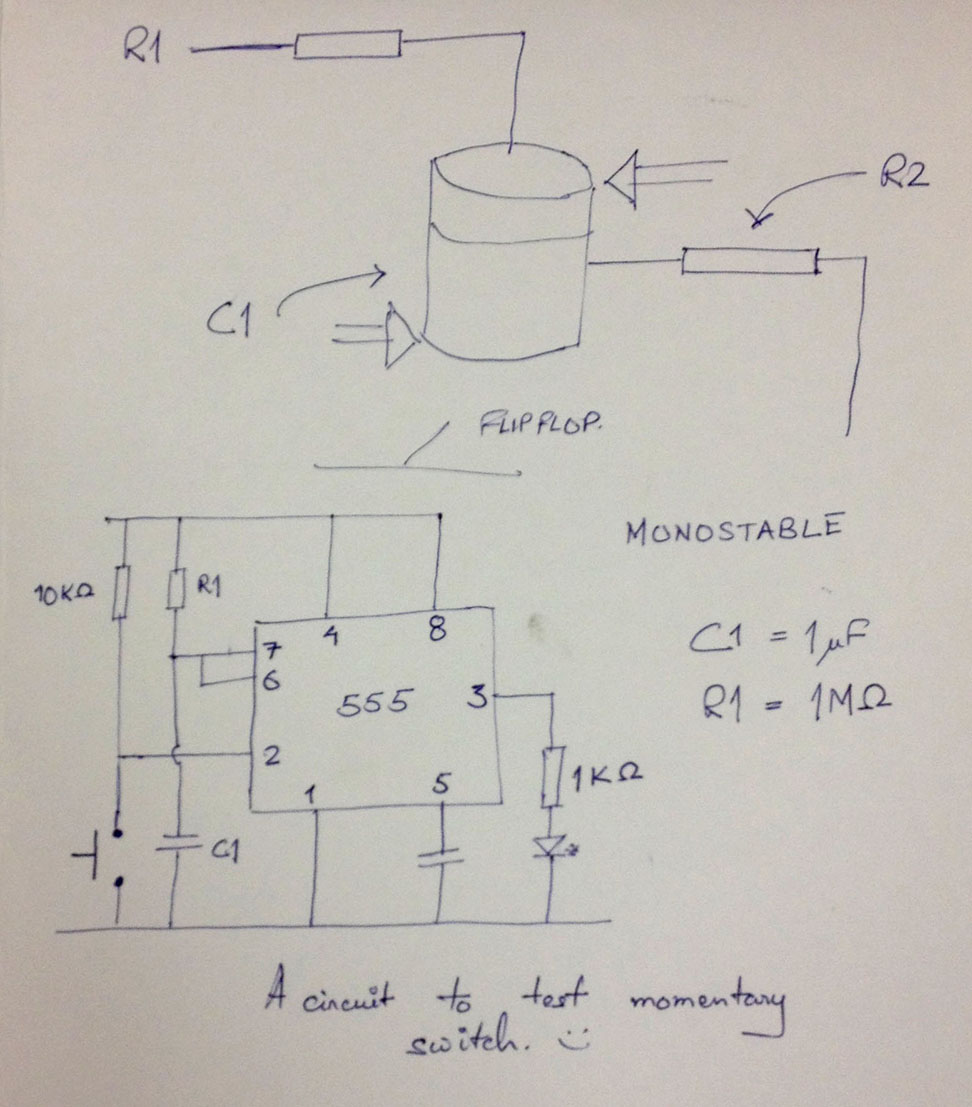 R1
R2
C1
FLIPFLOP.
MONOSTABLE
10KΩ
R1
4
8
7
6
555
3
2
1
5
C1 = 1μF
R1 = 1MΩ
1KΩ
C1
A circuit to test momentary
switch. :)